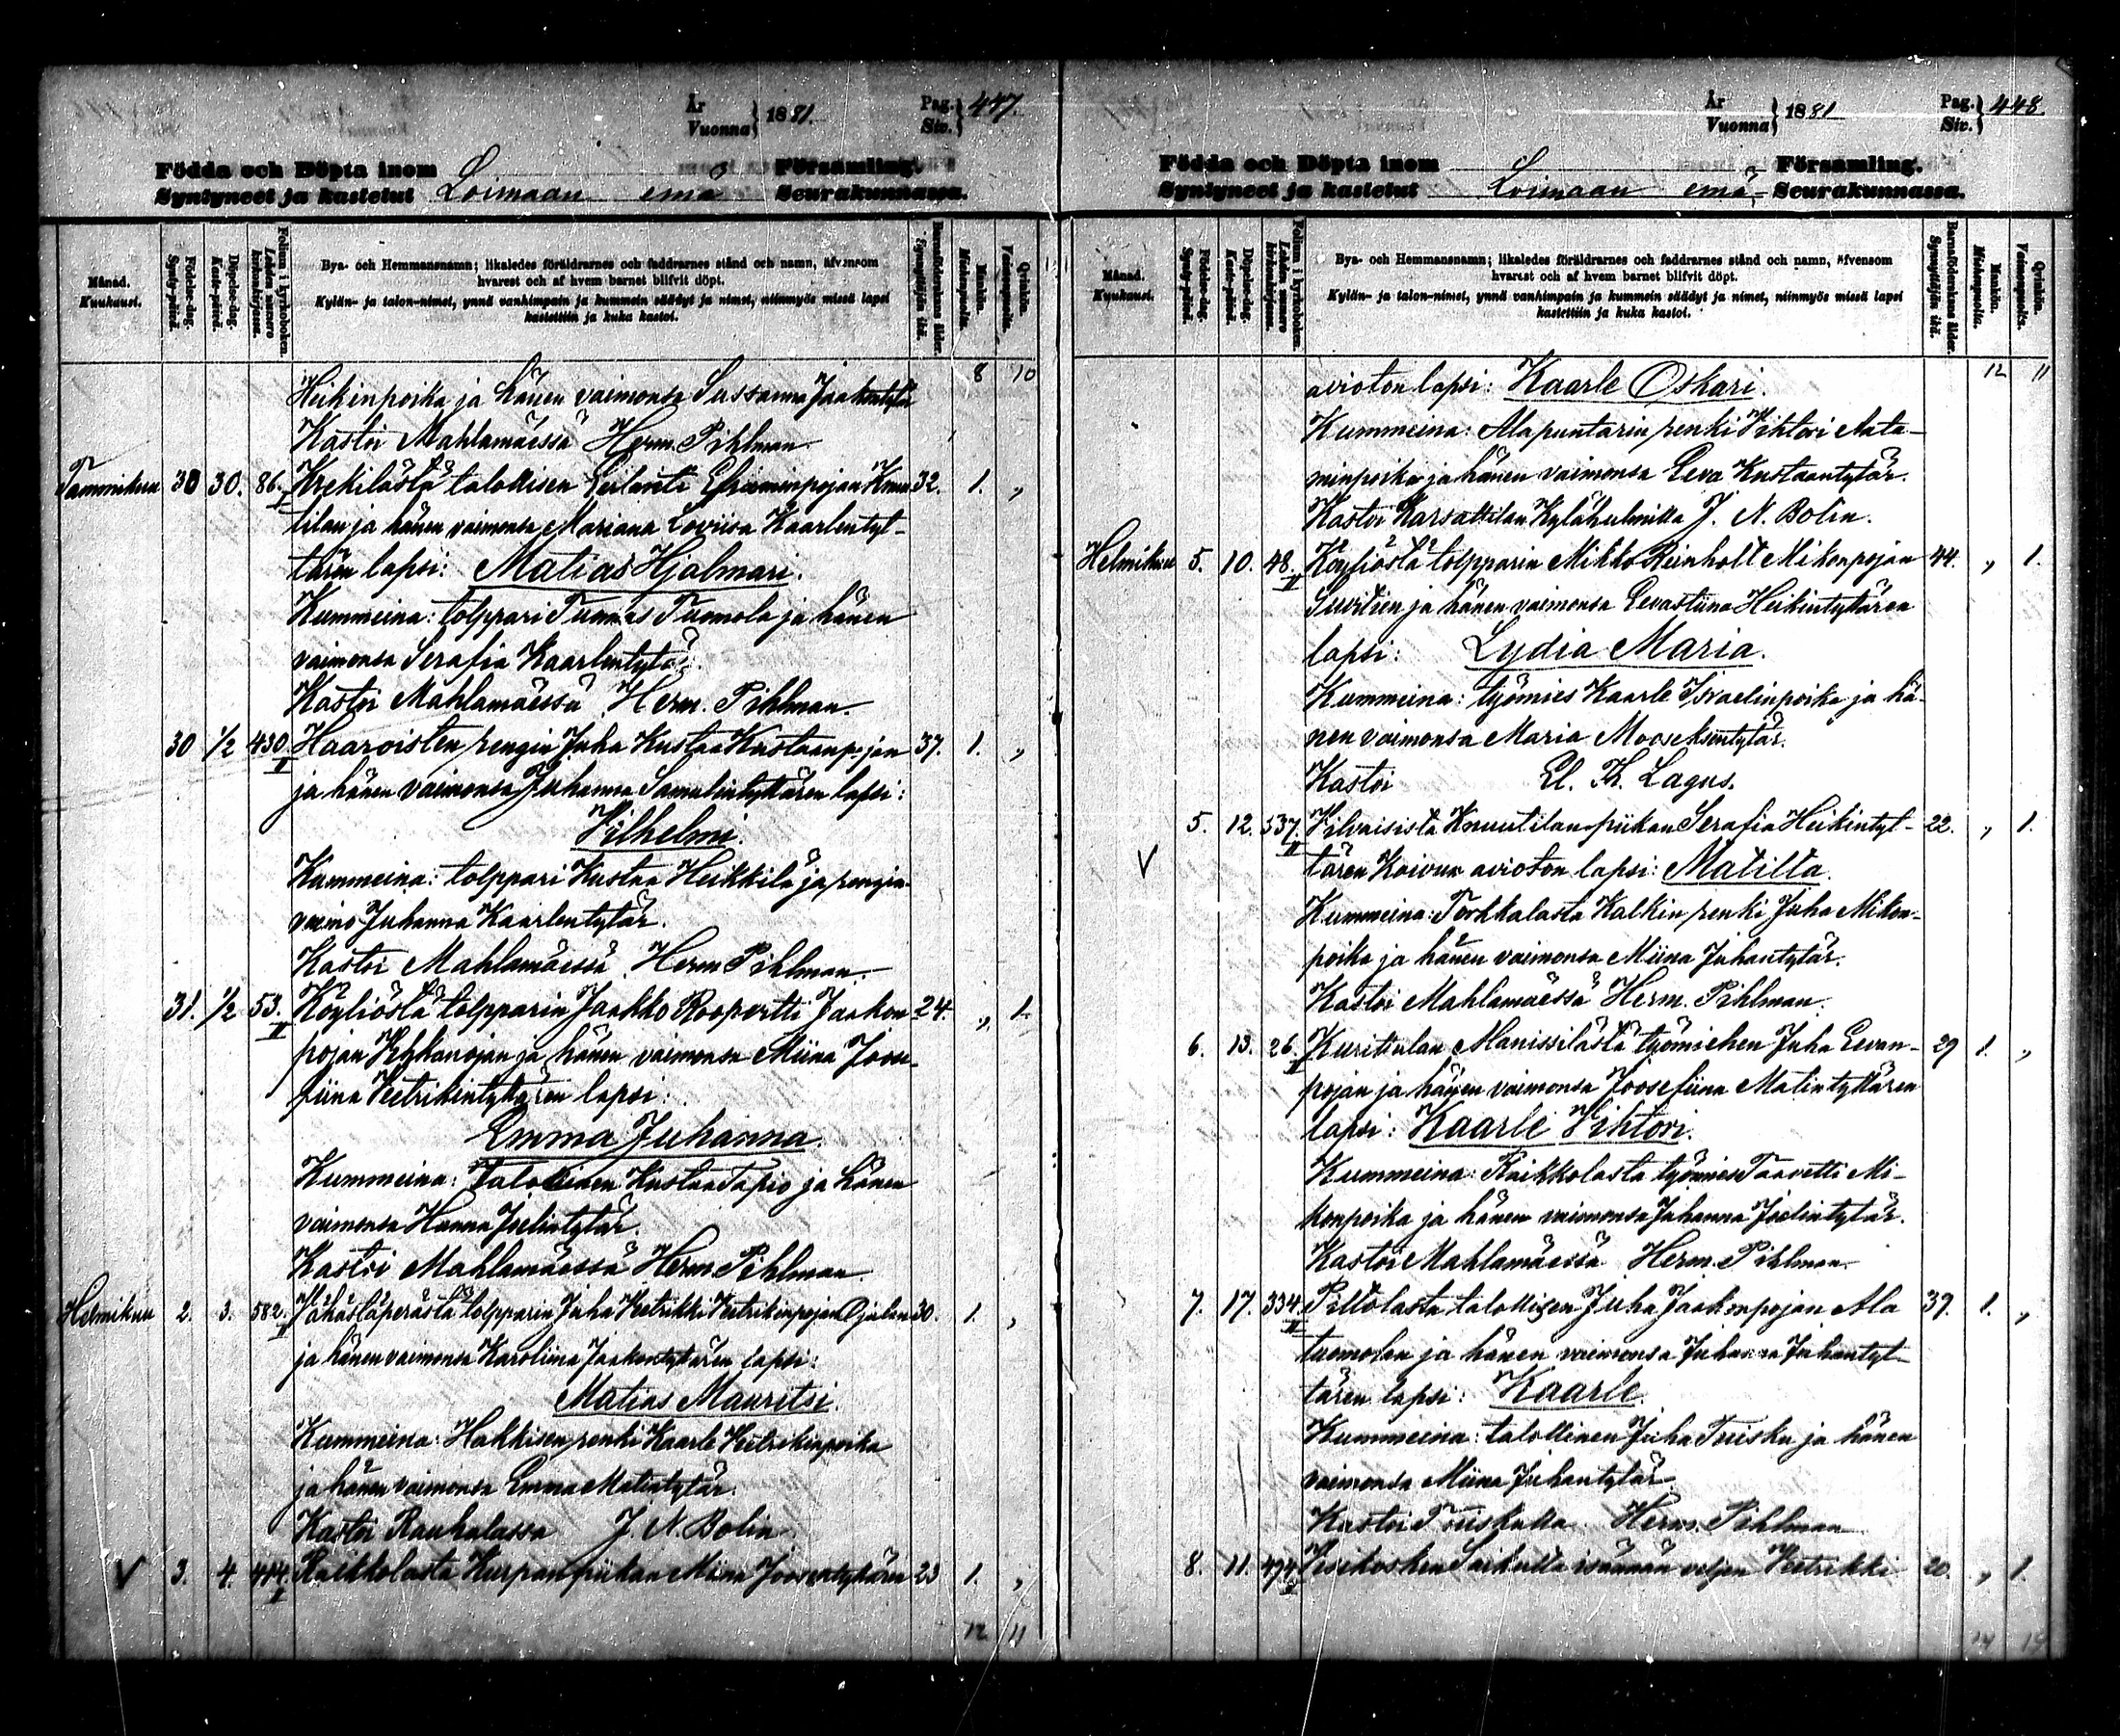 År
Vuonna } 1881.
Pag.
Siv. } 447.
Födda och Döpta inom Församling.
Syntyneet ja kastetut Loimaan emä Seurakunnassa.
Månad.
Kuukausi.
Födelse-dag.
Synty-päivä.
Döpelse-dag.
Kaste-päivä.
Folium i kyrkoboken.
Lehden numero kirkonkirjassa.
Bya- och Hemmansnamn; likaledes föräldrarnes och faddrarnes stånd och namn, äfvensom
hvarest och af hvem barnet blifvit döpt.
Kylän- ja talon-nimet, ynnä vanhimpain ja kummein säädyt ja nimet, niinmyös missä lapsi
kastettiin ja kuka kastoi.
Barnaföderskans ålder.
Synnyttäjän ikä.
Mankön.
Miehenpuolia.
Qvinkön.
Vaimonpuolia.
8 10
Heikinpoika ja hänen vaimonsa Sussanna Jaakontytär
Kastoi Mahlamäessä Herm. Pihlman
Tammikuu 30 30. 86. I Krekilästä talollisen Eerlantti Efraiminpojan Knuu 32. 1. „
tilan ja hänen vaimonsa Mariana Loviisa Kaarlentyt-
tären lapsi: Matias Hjalmari.
Kummeina: tolppari Tuomas Tuomola ja hänen
vaimonsa Serafia Kaarlentytär.
Kastoi Mahlamäessä Herm. Pihlman.
30 1/2 430 II Haaroisten rengin Juha Kustaa Kustaanpojan 37. 1. „
ja hänen vaimonsa Juhanna Samulintyttären lapsi:
Vilhelmi.
Kummeina: tolppari Kustaa Heikkilä ja rengin
vaimo Juhanna Kaarlentytär.
Kastoi Mahlamäessä Herm Pihlman.
31. 1/2 53. II Köyliöstä tolpparin Jaakko Roopertti Jaakon 24. „ 1.
pojan ja hänen vaimonsa Miina Joose-
fiina Veetrikintyttären lapsi:
Emma Juhanna.
Kummeina: Talollinen Kustaa Tapio ja hänen
vaimonsa Hanna Joelintytär.
Kastoi Mahlamäessä Herm Pihlman.
Helmikuu 2. 3. 582. II Vähästäperästä tolpparin Juha Veetrikki Veetrikinpojan Ojalan 30. 1. „
ja hänen vaimonsa Karoliina Jaakontyttären lapsi:
Matias Mauritsi.
Kummeina: Hakkisen renki Kaarle Veetrikinpoika
ja hänen vaimonsa Emma Matintytär.
Kastoi Rauhalassa J. N. Bolin
V 3. 4. 414. I Raikkolasta Kurpan piikan Miina Joosentyttären 23 1. „
12 11
År
Vuonna } 1881
Pag.
Siv. } 448.
Födda och Döpta inom Församling.
Syntyneet ja kastetut Loimaan emä- Seurakunnassa.
Månad.
Kuukausi.
Födelse-dag.
Synty-päivä.
Döpelse-dag.
Kaste-päivä.
Folium i kyrkoboken.
Lehden numero kirkonkirjassa.
Bya- och Hemmansnamn; likaledes föräldrarnes och faddrarnes stånd och namn, äfvensom
hvarest och af hvem barnet blifvit döpt.
Kylän- ja talon-nimet, ynnä vanhimpain ja kummein säädyt ja nimet, niinmyös missä lapsi
kastettiin ja kuka kastoi.
Barnaföderskans ålder.
Synnyttäjän ikä.
Mankön.
Miehenpuolia.
Qvinkön.
Vaimonpuolia.
12 11
avioton lapsi: Kaarle Oskari.
Kummeina: Alapuntarin renki Vihtori Aata-
minpoika ja hänen vaimonsa Eeva Kustaantytär.
Kastoi Karsattilan Kyläkulmilla J. N. Bolin.
Helmikuu 5. 10. 48. II Köyliöstä tolpparin Mikko Reinholt Mikonpojan 44. „ 1.
ja hänen vaimonsa Eevastiina Heikintyttären
lapsi: Lydia Maria.
Kummeina: työmies Kaarle Israelinpoika ja hä-
nen vaimonsa Maria Mooseksentytär.
Kastoi El. Th. Lagus.
5. 12. 537. II Vilvaisista Knuutilan piikan Serafia Heikintyt- 22. „ 1.
V tären Koivun avioton lapsi: Matilta.
Kummeina: Torkkalasta Kalkin renki Juha Mikon-
poika ja hänen vaimonsa Miina Juhantytär.
Kastoi Mahlamäessä Herm. Pihlman.
6. 13. 26. II Kuritulan Manissilästä työmiehen Juha Eevan- 29 1. „
pojan ja hänen vaimonsa Joosefiina Matintyttären
lapsi: Kaarle Vihtori.
Kummeina: Raikkolasta työmies Taavetti Mi-
konpoika ja hänen vaimonsa Juhanna Joelintytär.
Kastoi Mahlamäessä Herm. Pihlman.
7. 17. 334. II Piltolasta talollisen Juha Jaakonpojan Ala 39. 1. „
tuomolan ja hänen vaimonsa Juhanna Juhantyt-
tären lapsi: Kaarle.
Kummeina: talollinen Juha Tuisku ja hänen
vaimonsa Miina Juhantytär.
Kastoi Tuiskulla Herm. Pihlman
8. 11. 494. Vesikosken isännän veljen Veetrikki 20. „ 1.